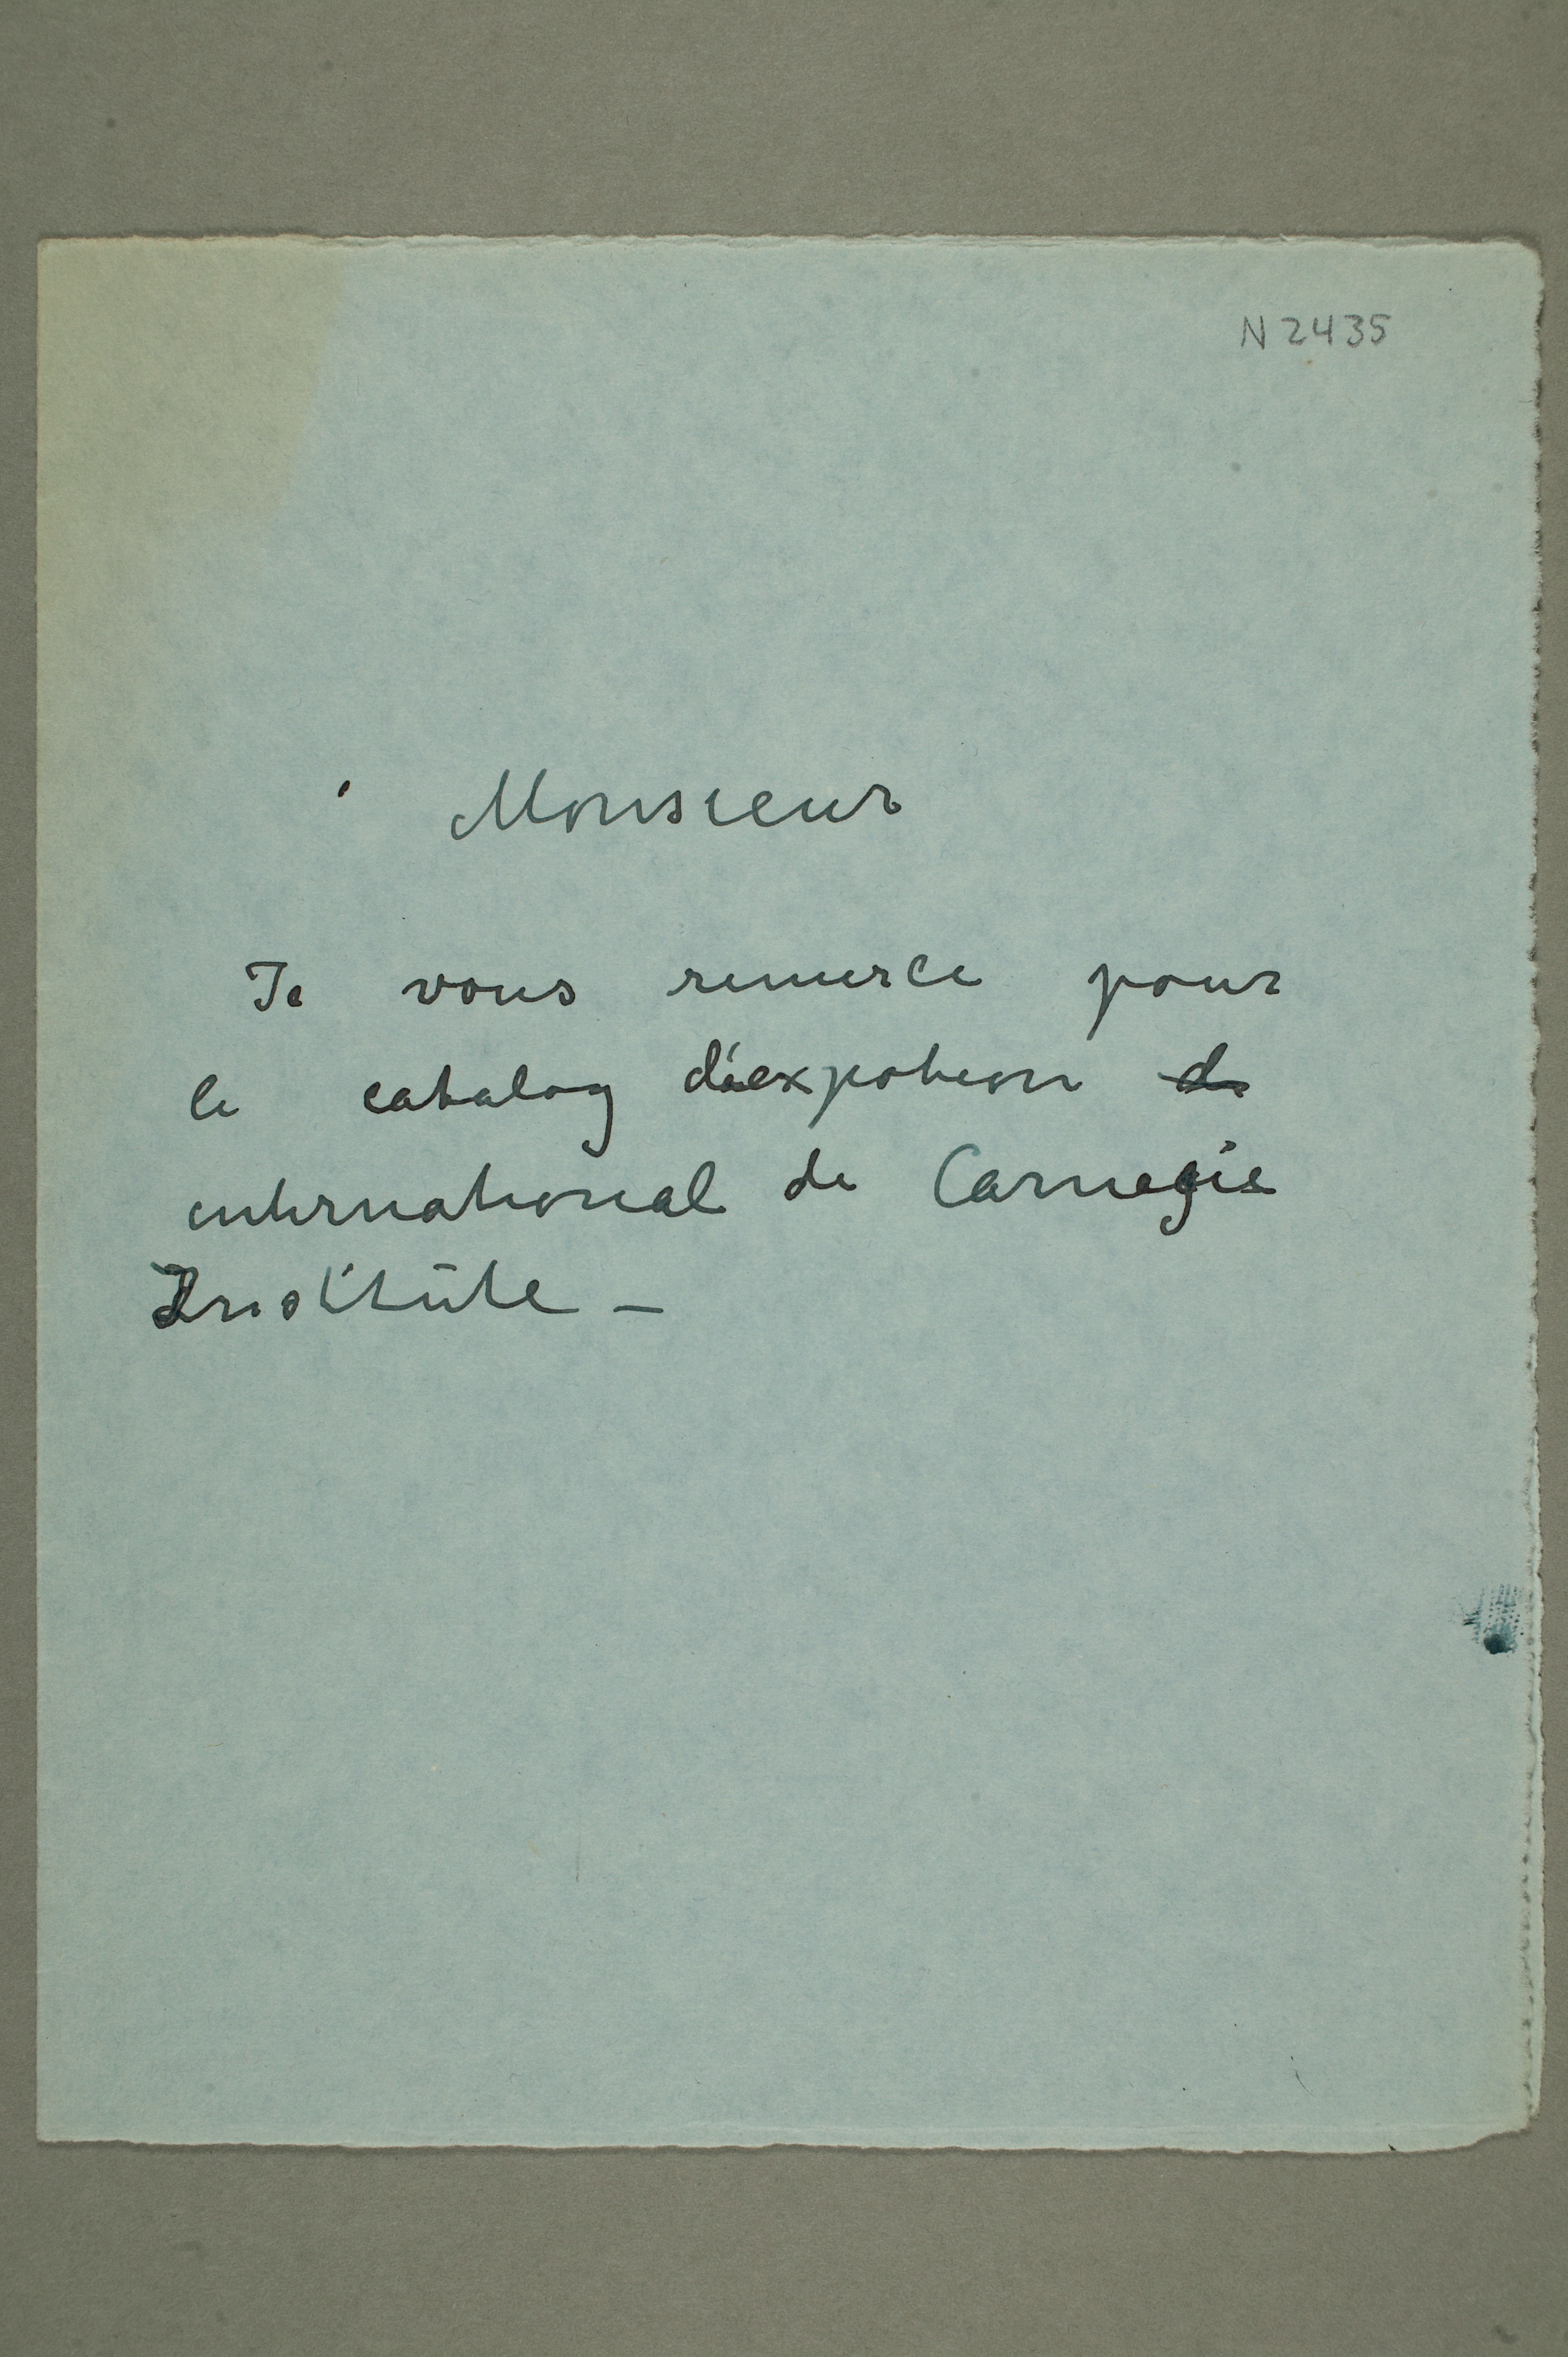 N 2435
Monsieur
Je vous remerce pour
le catalog d'expotion de
international de Carnegie
Institute –